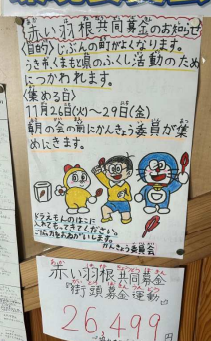 赤い羽根共同募金のお知らせ
<目的>じぶんの町がよくなります。
うき市くまもと県のふくし活動のため
につかわれます。
<集める日>
11月26日(火)~29日(金)
朝の会の前にかんきょう委員が集
めにきます。
どうえもんのはこに
入れてもってきてください。
ご協力をおねがいします。
かんきょう委員会
赤い羽根共同募金
『街頭募金運動』
26,499円